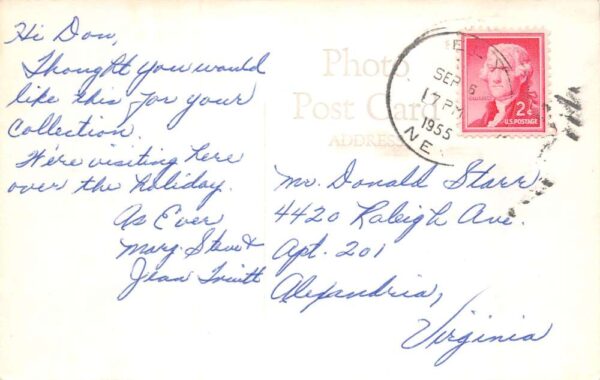 Hi Don,
Thought you would
like this for your
Collection.
We're visiting here
over the holiday.
As Ever
Marg. Steve &
Jean
Photo
Post Card
ADDRESS
SEP 6
17 PM
1955
NE
2¢
U.S. POSTAGE
Mr. Donald Starr
4420 Raleigh Ave.
Apt. 201
Alexandria,
Virginia